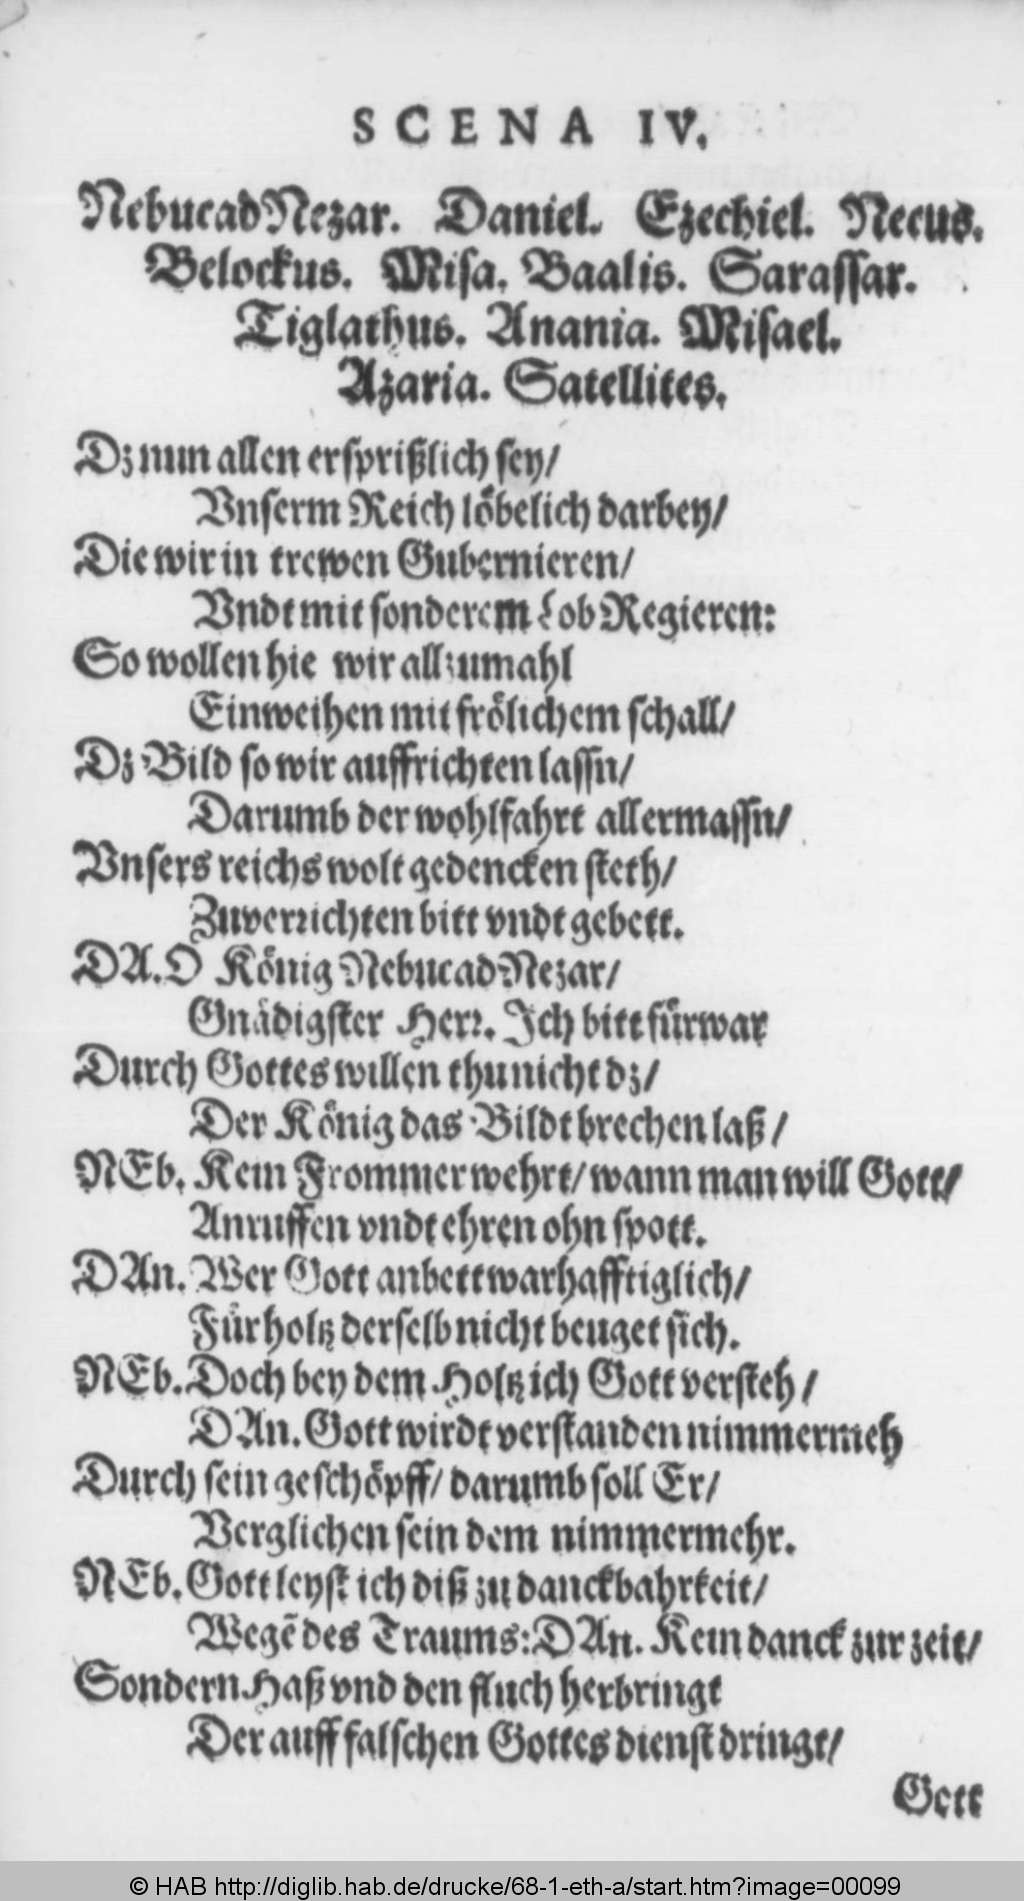 SCENA IV.
NebucadNezar. Daniel. Ezechiel. Necus.
Belockus. Misa. Baalis. Sarassar.
Tiglathus. Anania. Misael.
Azaria. Satellites.
Dz nun allen ersprißlich sey/
Vnserm Reich löbelich darbey/
Die wir in trewen Gubernieren/
Vndt mit sonderem Lob Regieren:
So wollen hie wir allzumahl
Einweihen mit frölichem schall/
Dz Bild so wir auffrichten lassn/
Darumb der wohlfahrt allermassn/
Vnsers reichs wolt gedencken steth/
Zuverrichten bitt vndt gebett.
DA. O König NebucadNezar/
Gnädigster Herr. Ich bitt fürwar
Durch Gottes willen thu nicht dz/
Der König das Bildt brechen laß/
NEb. Kein Frommer wehrt/ wann man will Gott/
Anruffen vndt ehren ohn spott.
DAn. Wer Gott anbett warhafftiglich/
Für holtz derselb nicht beuget sich.
NEb. Doch bey dem Holtz ich Gott versteh/
DAn. Gott wirdt verstanden nimmermeh
Durch sein geschöpff/ darumb soll Er/
Verglichen sein dem nimmermehr.
NEb. Gott leyst ich diß zu danckbahrkeit/
Wegẽ des Traums: DAn. Kein danck zur zeit/
Sondern Haß vnd den fluch herbringt
Der auff falschen Gottes dienst dringt/
Gott
© HAB http://diglib.hab.de/drucke/68-1-eth-a/start.htm?image=00099